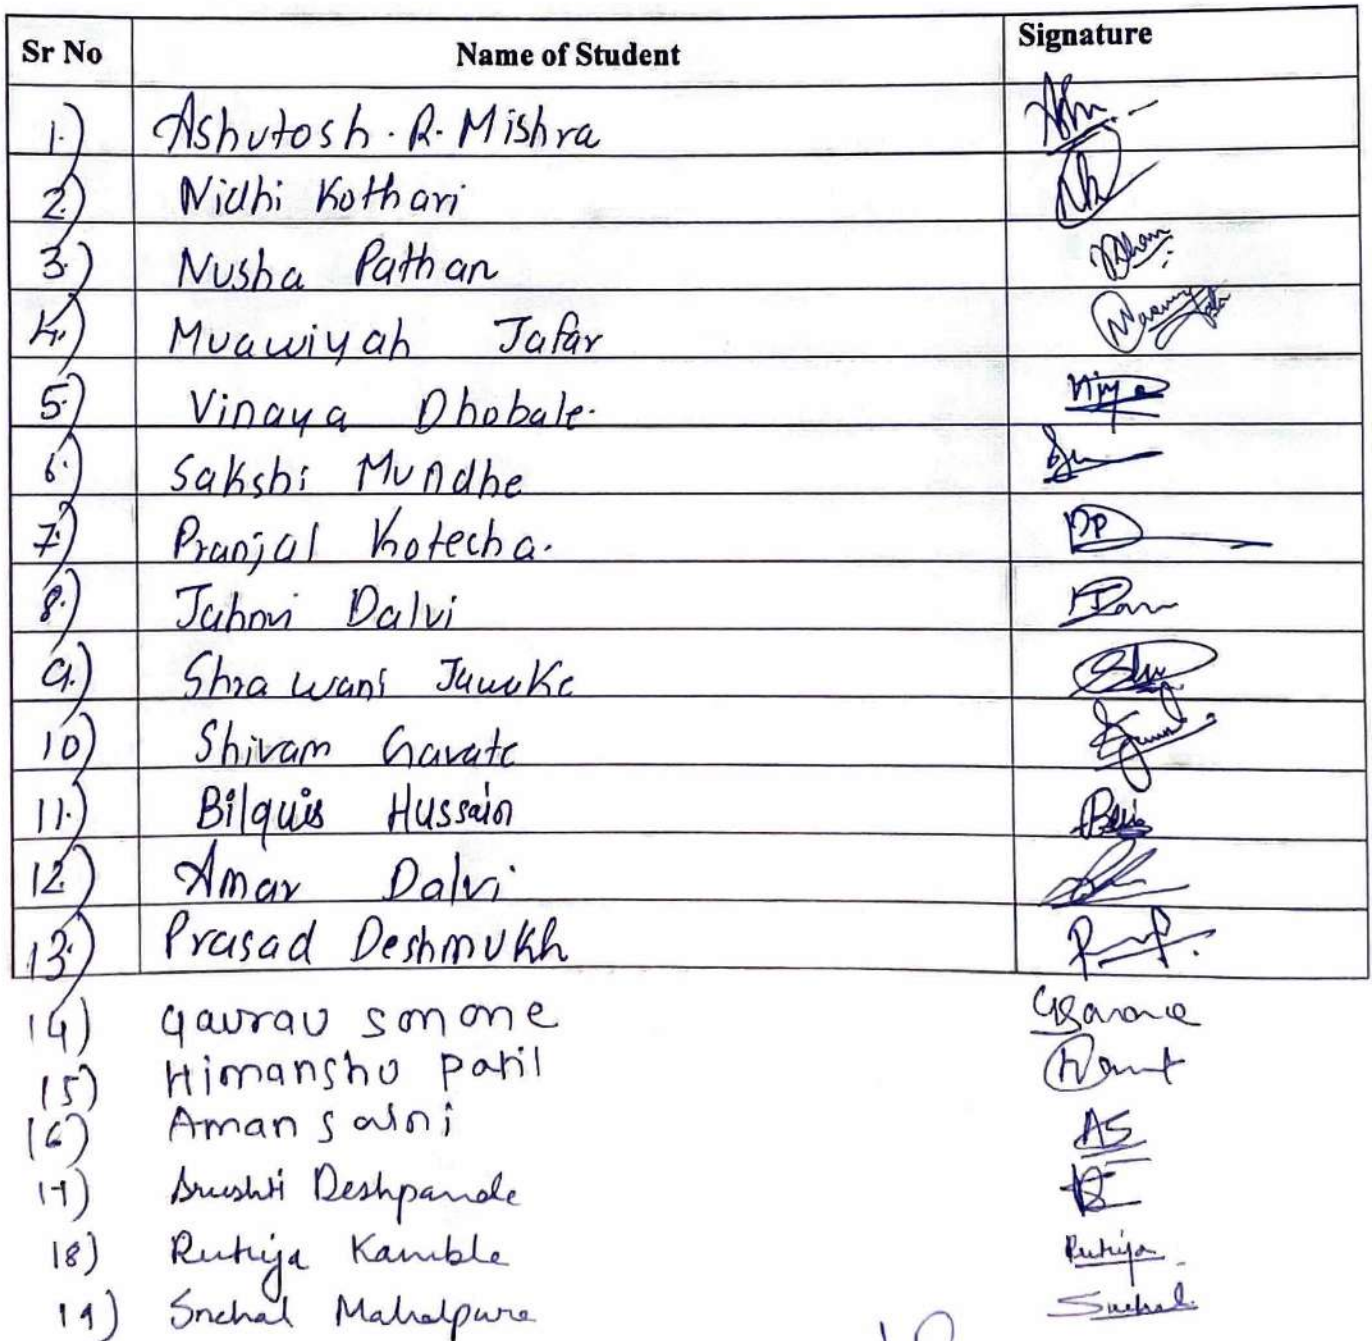 Sr No Name of Student Signature
1.) Ashutosh. R. Mishra
2.) Nidhi Kothari
3.) Nusha Pathan
4.) Muawiyah Jafar
5.) Vinaya Dhobale.
6.) Sakshi Mundhe
7.) Pranjal Kotecha.
8.) Jahnvi Dalvi
9.) Shrawani Jawke
10) Shivam Gavate
11.) Bilquis Hussain
12.) Amar Dalvi
13.) Prasad Deshmukh
14) Gaurav Sonone
15) Himanshu Patil
16) Aman Saini AS
17) Srushti Deshpande
18) Rutuja Kamble Rutuja
19) Snehal Mahalpure Snehal